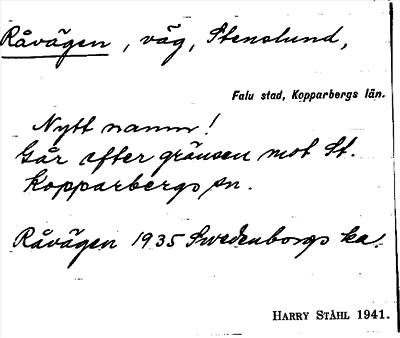 Råvägen, väg, Stenslund,
Falu stad, Kopparbergs län.
Nytt namn!
Går efter gränsen mot St.
Kopparbergs sn.
Råvägen 1935 Swedenborgs ka.
HARRY STÅHL 1941.